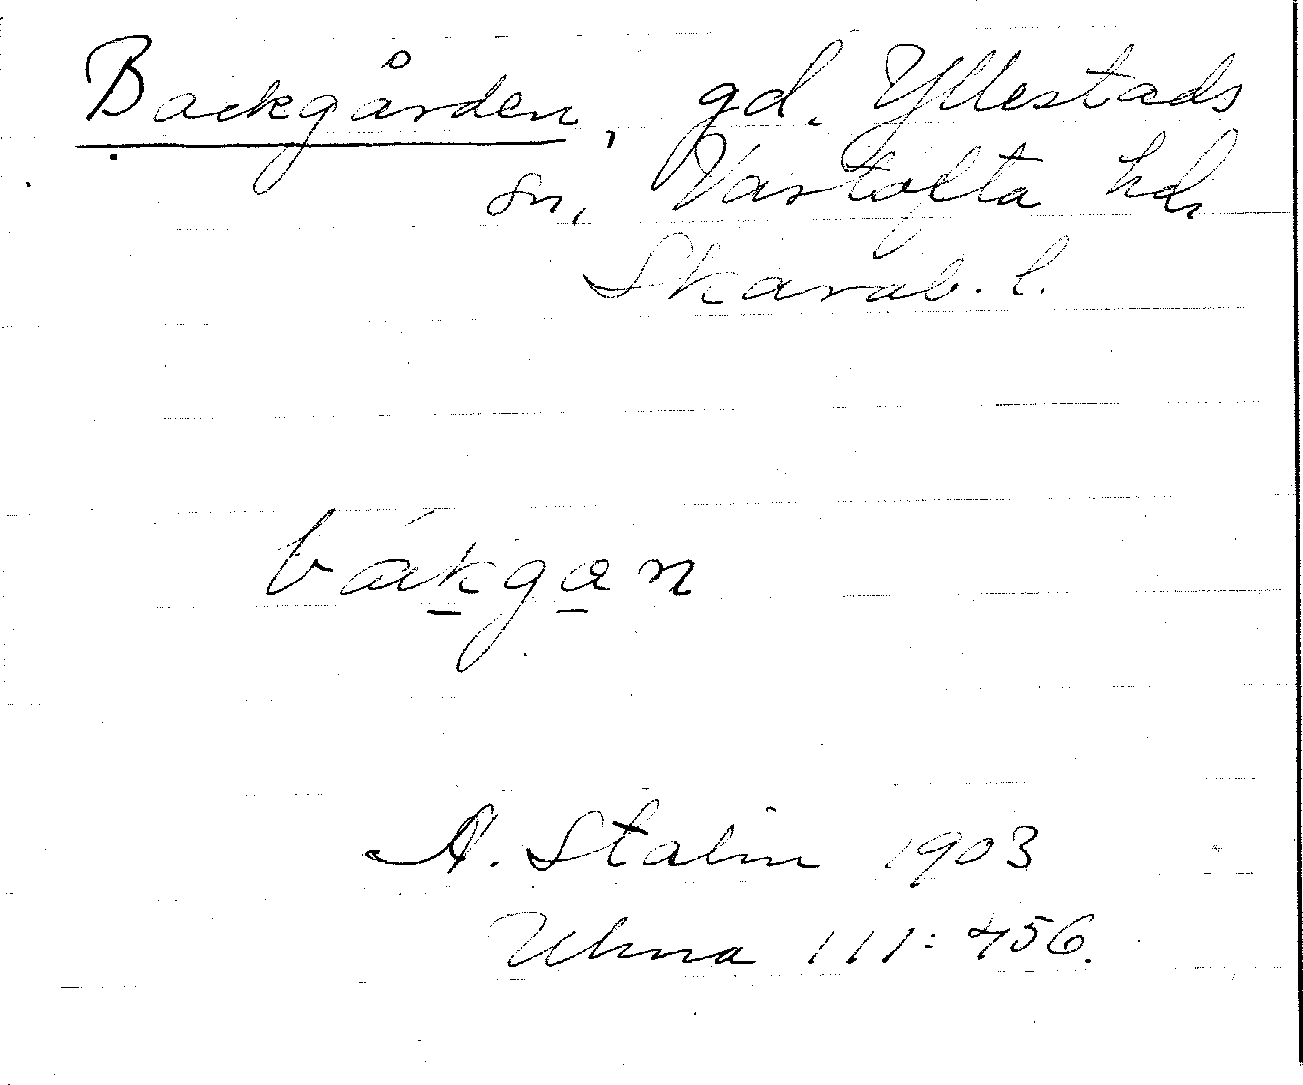 Backgården, gd. Yllestads
sn, Vartofta hd,
Skarab. l.
bákgan
A. Stalin 1903
Ulma 111: 456.